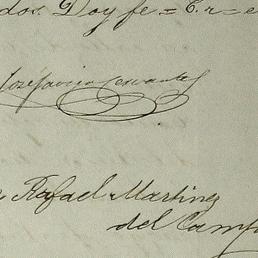 dos. Doy fe = E. r = e
Jose Javier Cervantes
Rafael Martinez
del Campo